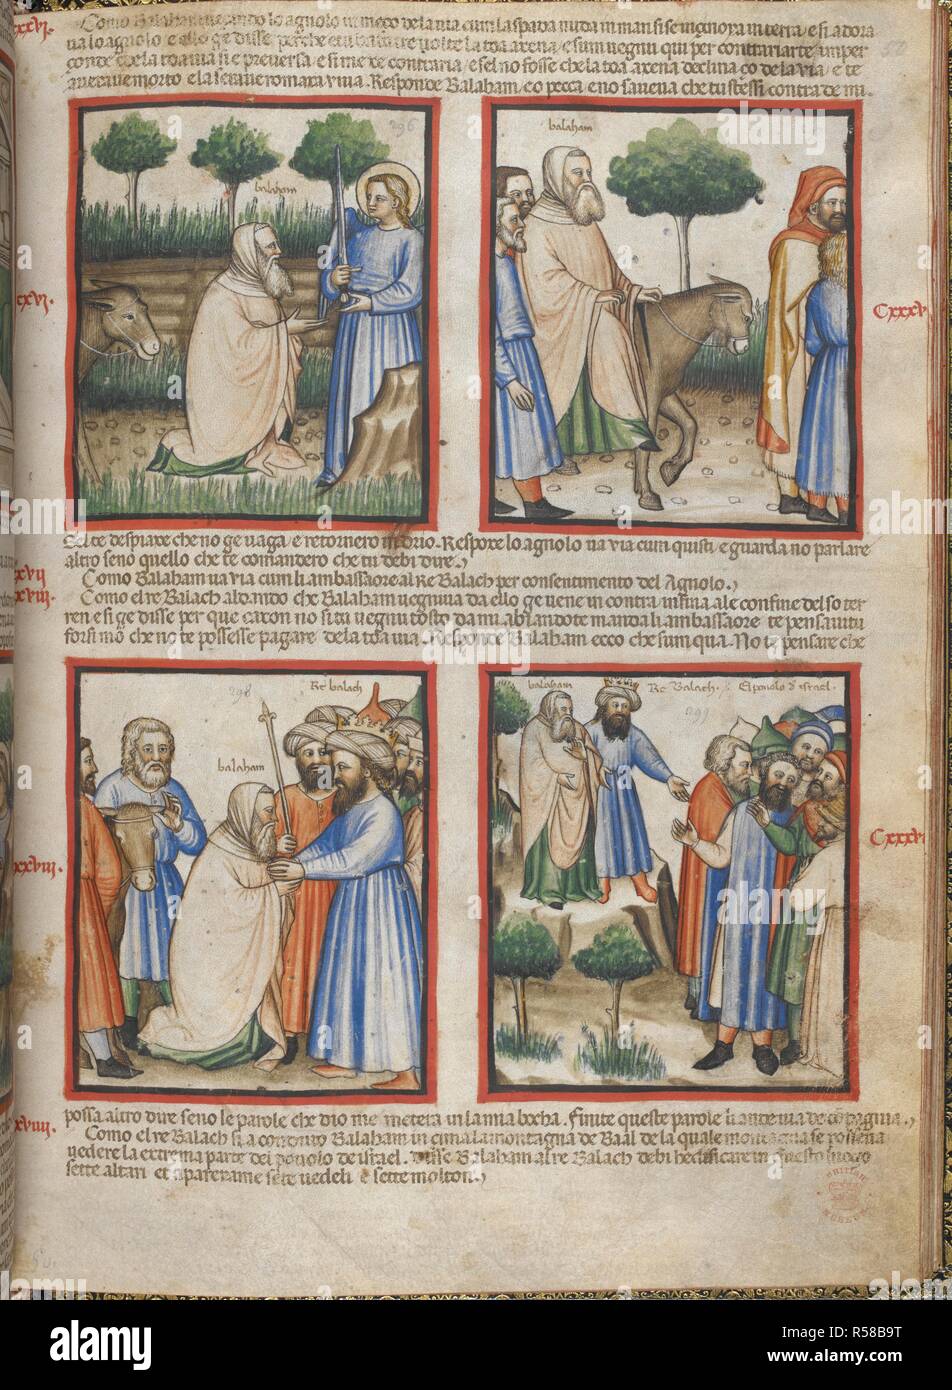 Como Balaham vecando lo agnolo in meço de la via cum la spada nuda in man si se ingenora in terra e si adora
va lo agnolo e ello ge disse perche e tu batu tre volte la toa axena / e sum vegnu qui per contrariarte imper
çonde che la toa via si e perversa e si me xe contraria / e se l no fosse che la toa axena declina ço de la via / e te
averave morto e la serave romaxa viva. Responde Balaham / eo pecca / e no saveva che tu stessi contra de mi.
balaham
296
balaham
Cxxxv
Sel te despiaxe che no ge vaga / e retornero indrio. Respoxe lo agnolo va via cum quisti / e guarda no parlare
altro seno quello che te comandero che tu debi dire.
Como Balaham va via cum li ambassaore al Re Balach per consentimento del Agnolo.
Como el re Balach aldando che Balaham vegniva da ello ge vene in contra infina a le confine del so ter
ren e si ge disse per que caxon no si tu vegnu tosto da mi abiandote manda li ambassaore te pensavitu
forsi mo che no te possesse pagare de la toa via. Responde Balaham ecco che sum qua. No te pensare che
Re balach
298
balaham
balaham
Re Balach.
El povolo d israel.
299
Cxxxvi
possa altro dire seno le parole che dio me metera in la mia bocha. Finite queste parole li ande via de compagnia.
Como el re Balach si a conduto Balaham in cima la montagna de Baal de la quale montagna se posseva
vedere la extrema parte del povolo de israel. Disse Balaham al re Balach debi hedificare in questo luogo
sette altari et aparerame sete vedeli e sette molton.
BRITISH
MUSEUM
alamy
Image ID: R58B9T
www.alamy.com